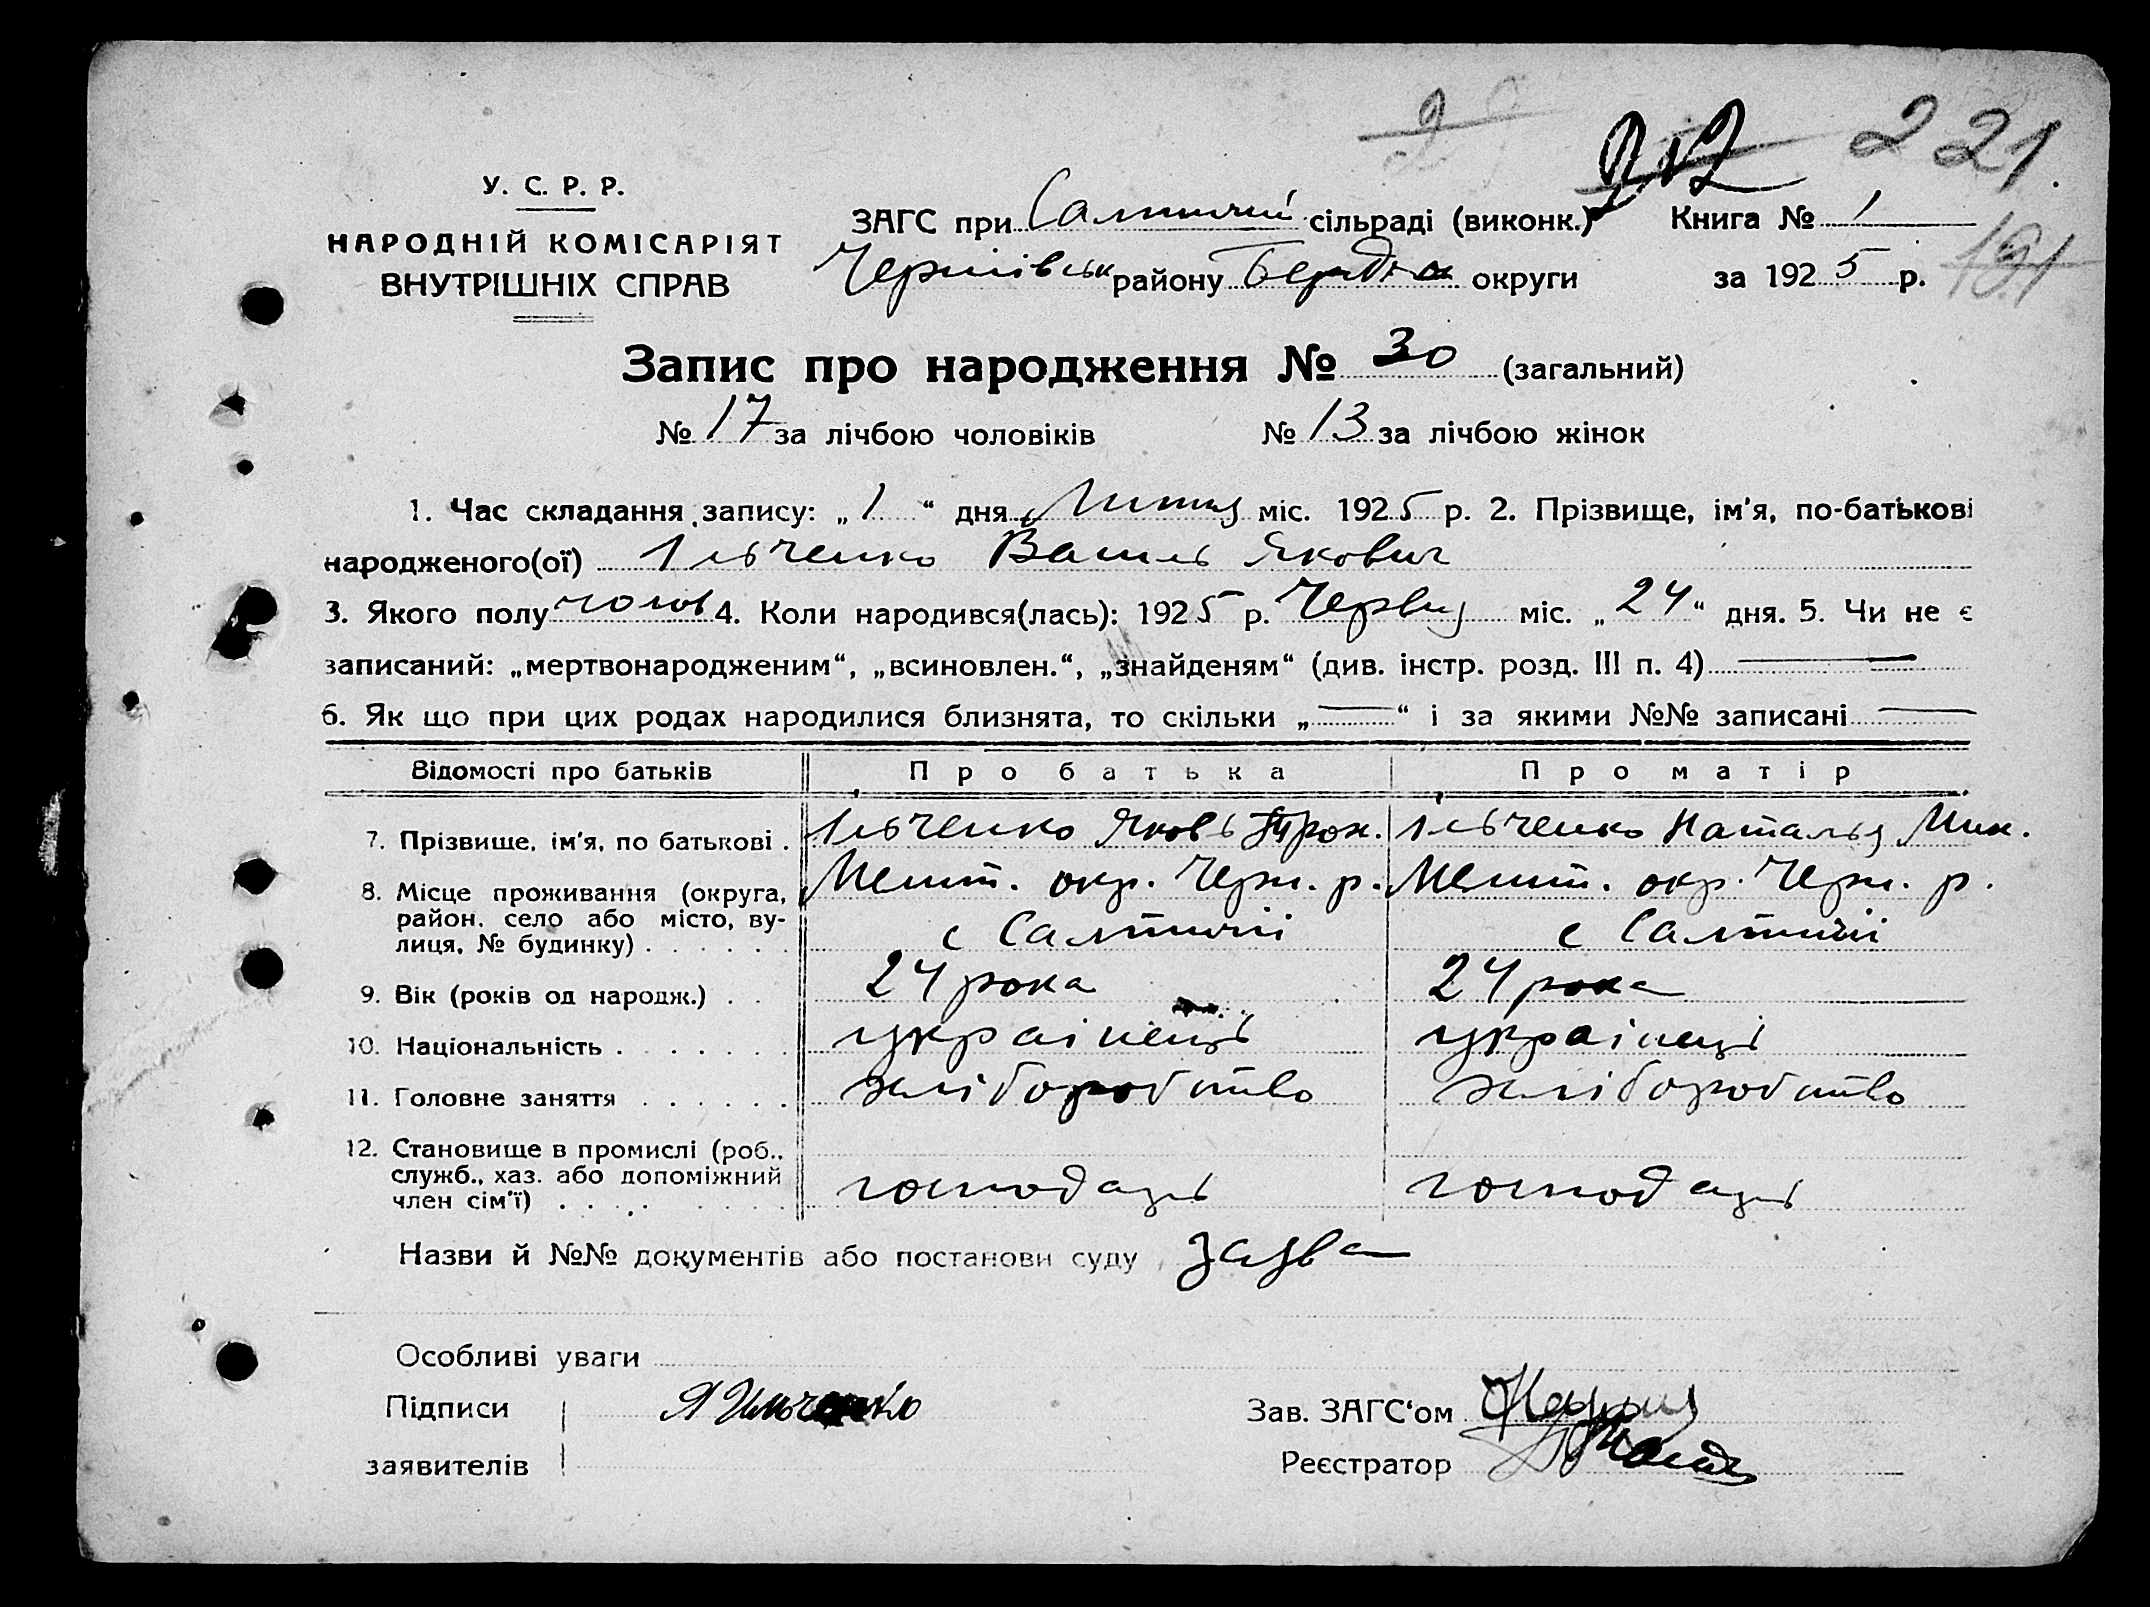 221.
У. С. Р. Р.
НАРОДНІЙ КОМІСАРІЯТ
ВНУТРІШНІХ СПРАВ
ЗАГС при Салтичій сільраді (виконк.) Книга № 1
191
Чернігівськ району Бердян округи за 1925 р.
Запис про народження № 30 (загальний)
№ 17 за лічбою чоловіків № 13 за лічбою жінок
1. Час складання запису: „1“ дня Липня міс. 1925 р. 2. Прізвище, ім'я, по-батькові
народженого(ої) Ільченко Василь Якович
3. Якого полу чолов 4. Коли народився(лась): 1925 р. Червня міс. „24“ дня. 5. Чи не є
записаний: „мертвонародженим“, „всиновлен.“, „знайденям“ (див. інстр. розд. III п. 4) —
6. Як що при цих родах народилися близнята, то скільки „—“ і за якими №№ записані —
Відомості про батьків Про батька Про матір
7. Прізвище, ім'я, по батькові . Ільченко Яковъ Трох. Ільченко Наталья Мик.
8. Місце проживання (округа, Меліт. окр. Черн. р. Меліт. окр. Черн. р.
район, село або місто, ву-
лиця, № будинку) . . . . . . с Салтичії с Салтичії
9. Вік (років од народж.) . . 24 рока 24 рока
10. Національність . . . . . . . українець українець
11. Головне заняття . . . . . . хліборобство хліборобство
12. Становище в промислі (роб.,
служб., хаз. або допоміжний господарь господарь
член сім'ї) . . . . . . . . .
Назви й №№ документів або постанови суду заява
Особливі уваги
Підписи Я Ильченко Зав. ЗАГС‘ом
заявителів Реєстратор